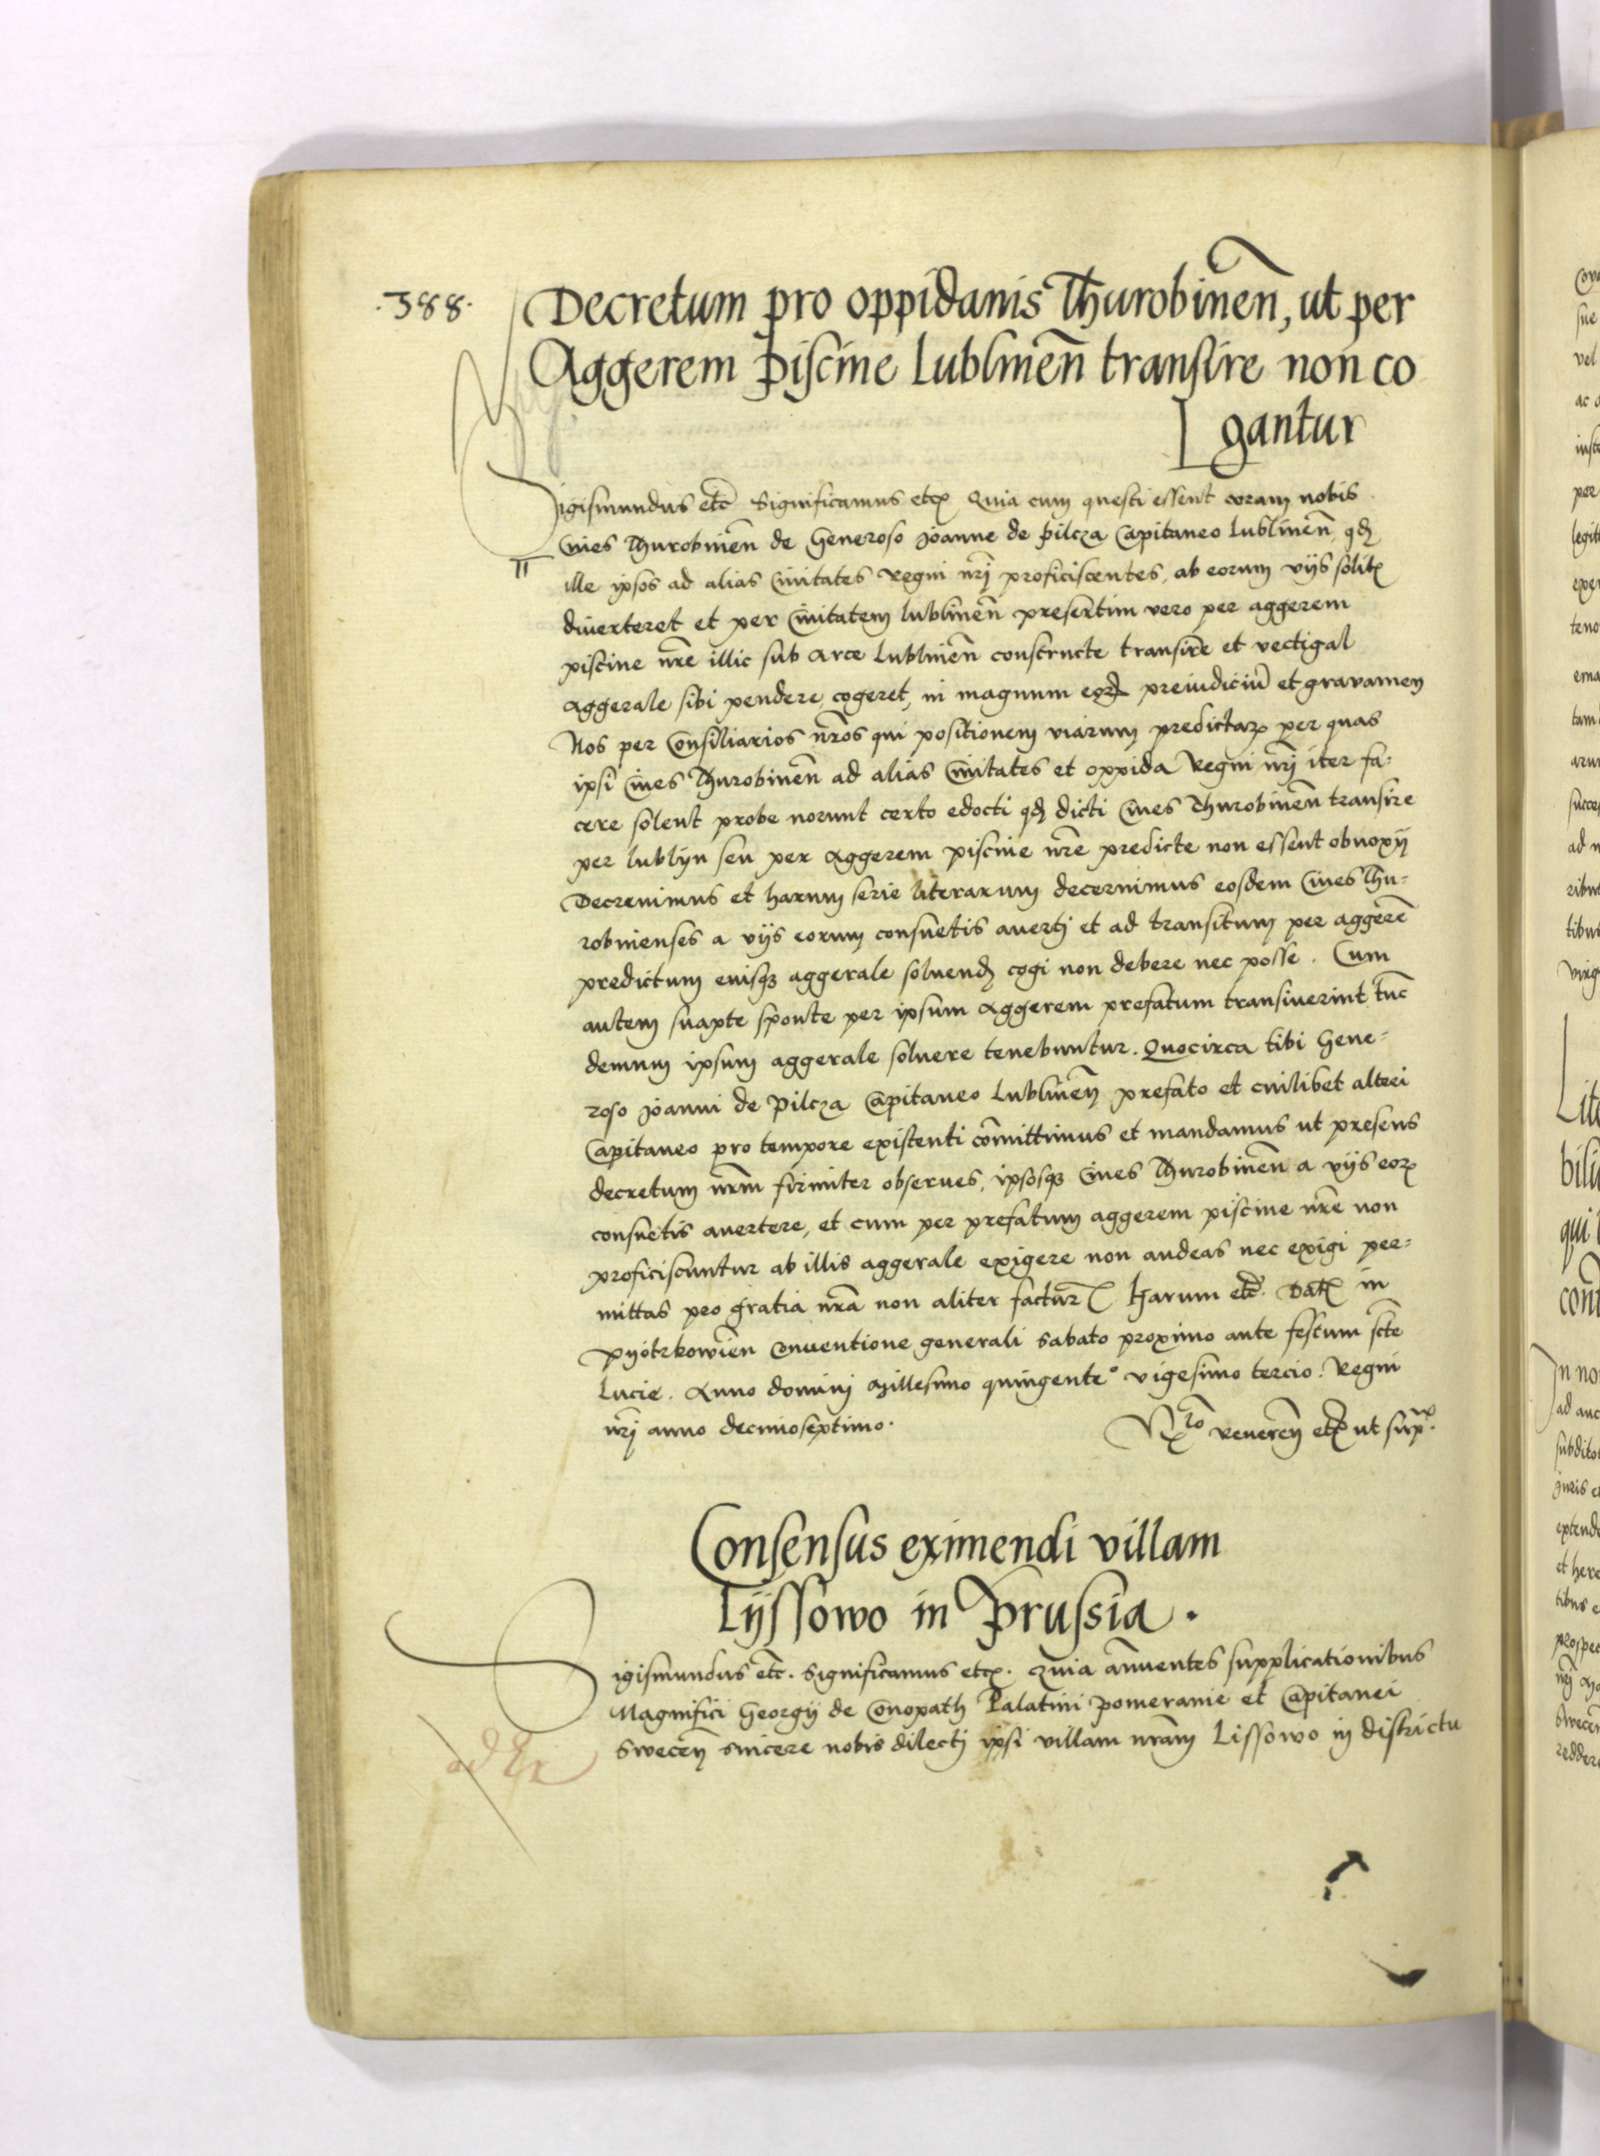 .388.
Decretum pro oppidanis Thurobinen̄, ut per
Aggerem piscine Lublinen̄ transire non co
gantur
Sigismundus etc̄ Significamus etc̄ Quia cum questi essent coram nobis
Cives Thurobinen̄ de Generoso Joanne de pilcza Capitaneo Lublinen̄, qd
ille ipsos ad alias Civitates regni nr̄j proficiscentes, ab eorum vijs solitꝭ
diverteret et per Civitatem lublinen̄ presertim vero per aggerem
piscine nr̄e illic sub Arce Lublinen̄ constructe transire et vectigal
aggerale sibi pendere cogeret, in magnum eoꝝ preiudiciū et gravamen
Nos per Consiliarios nr̄os qui positionem viarum predictaꝝ per quas
ipsi Cives Thurobinen̄ ad alias Civitates et oppida Regni nr̄j iter fa-
cere solent probe norunt certo edocti qd dicti Cives Thurobinen̄ transire
per lublyn seu per Aggerem piscine nr̄e predicte non essent obnoxij
Decrevimus et harum serie literarum decernimus eosdem Cives Thu-
robinenses a vijs eorum consuetis averti et ad transitum per aggerē
predictum eiusqꝫ aggerale solvend cogi non debere nec posse. Cum
autem suapte sponte per ipsum Aggerem prefatum transiverint tūc
demum ipsum aggerale solvere tenebuntur. Quocirca tibi Gene-
roso Joanni de Pilcza Capitaneo Lublinen̄ prefato et cuilibet alteri
Capitaneo pro tempore existenti cōmittimus et mandamus ut presens
decretum nr̄m firmiter observes, ipsosqꝫ Cives Thurobinen̄ a vijs eoꝝ
consuetis avertere, et cum per prefatum aggerem piscine nr̄e non
proficiscuntur ab illis aggerale exigere non audeas nec exigi per-
mittas pro gratia nr̄a non aliter facturꝰ Harum etc̄. Datꝭ in
Pyotrkowien̄ Conventione generali Sabato proximo ante festum sct̄e
Lucie. Anno domini Millesimo quingente° vigesimo tercio. Regni
nr̄j anno decimoseptimo.
Rᵗⁱᵒ Reveren̄ etc̄ ut sup̄ᵃ.
Consensus eximendi villam
Lyssowo in Prussia.
Sigismundus etc̄. Significamus etc̄. Quia annuentes supplicationibus
Magnifici Georgij de Conopath Palatini Pomeranie et Capitanei
Swecen̄ sincere nobis dilecti ipsi villam nr̄am Lissowo in districtu